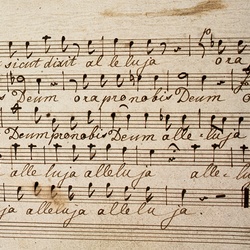 sicut dixit al le luja ora
Deum ora pro nobis Deum
Deum pro nobis Deum alle luja
alle luja alle luja alle
ja alleluja alle lu ja.